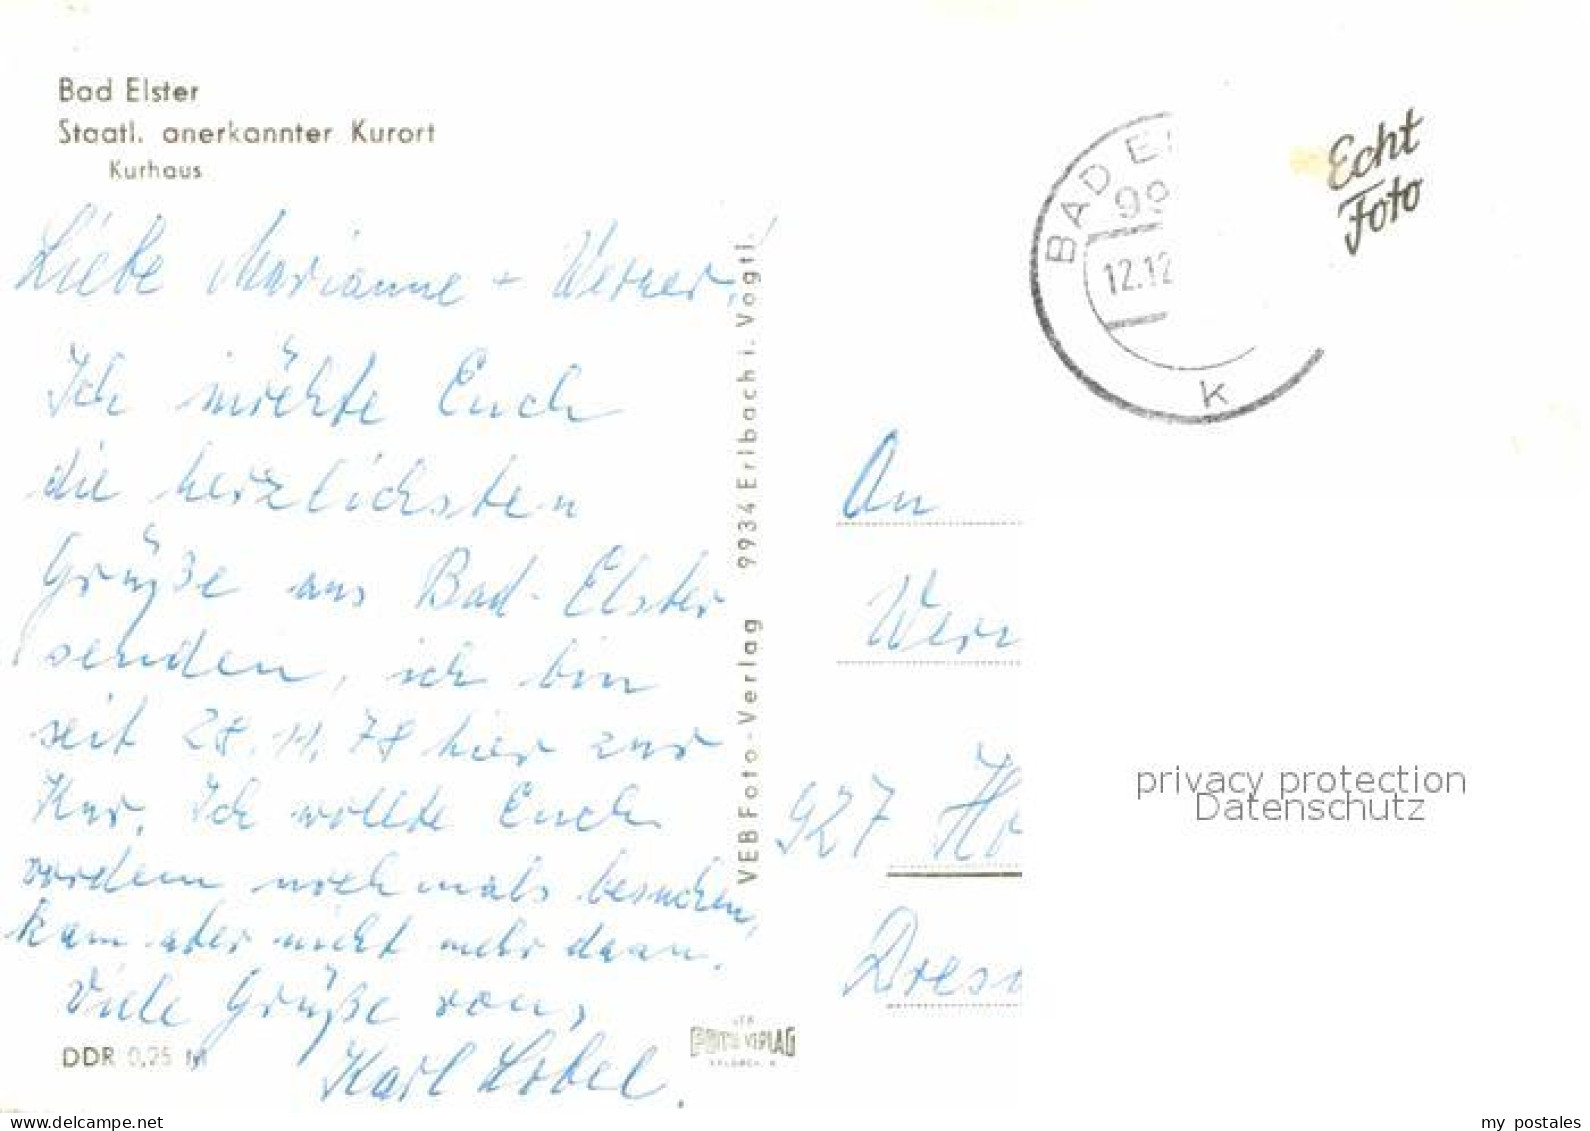 Bad Elster
Staatl. anerkannter Kurort
Kurhaus
Liebe Marianne + Werner!
Ich möchte Euch
die herzlichsten
Grüße aus Bad-Elster
senden, ich bin
seit 28.11.78 hier zur
Kur. Ich wollte Euch
vordem noch mals besuchen,
kam aber nicht mehr daran.
Viele Grüße von
Karl Lobel.
DDR 0,25 M
VEB Foto-Verlag 9934 Erlbach i. Vogtl.
FOTO VERLAG
BAD EL
99
12.12
k
Echt
Foto
An
Wern
927 Ho
Dres
privacy protection
Datenschutz
www.delcampe.net
my_postales